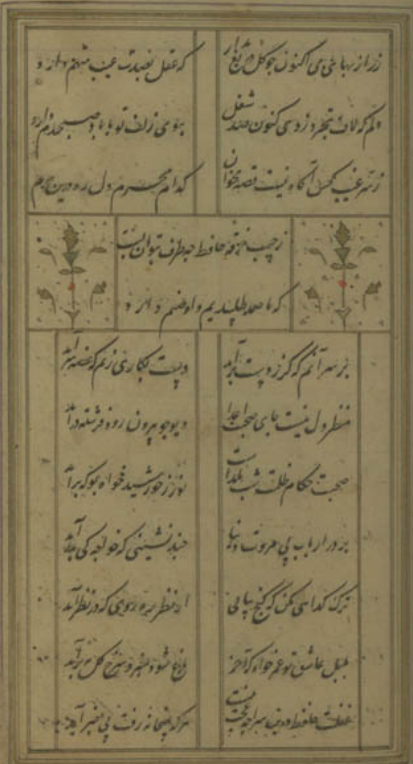 زر از بهای می اکنون چو گل دریغ مدار که عقل بصدت عیب متهم دارد
دلم که لاف تجرد زدی کنون صد شغل ببوی زلف تو با باد صبحدم دارد
ز سر غیب کس آگاه نیست قصه مخوان کدام محرم دل ره درین حرم
ز جیب خرقه حافظ چه طرف بتوان بست
که ما صمد طلبیدیم و او صنم دارد
بر سر آنم که گر ز دست برآید دست بکاری زنم که غصه سر آید
منظر دل نیست جای صحبت دیو چو بیرون رود فرشته درآید
صحبت حکام ظلمت شب یلداست نور ز خورشید خواه بو که برآید
بر در ارباب بی مروت دنیا چند نشینی که خواجه کی بدرآید
ترک گدایی مکن که گنج بیابی از نظر رهروی که در نظر آید
بلبل عاشق تو عمر خواه که آخر باغ شود سبز و سرخ گل ببر آید
غفلت حافظ درین سراچه عجب نیست هر که بمیخانه رفت بی خبر آید